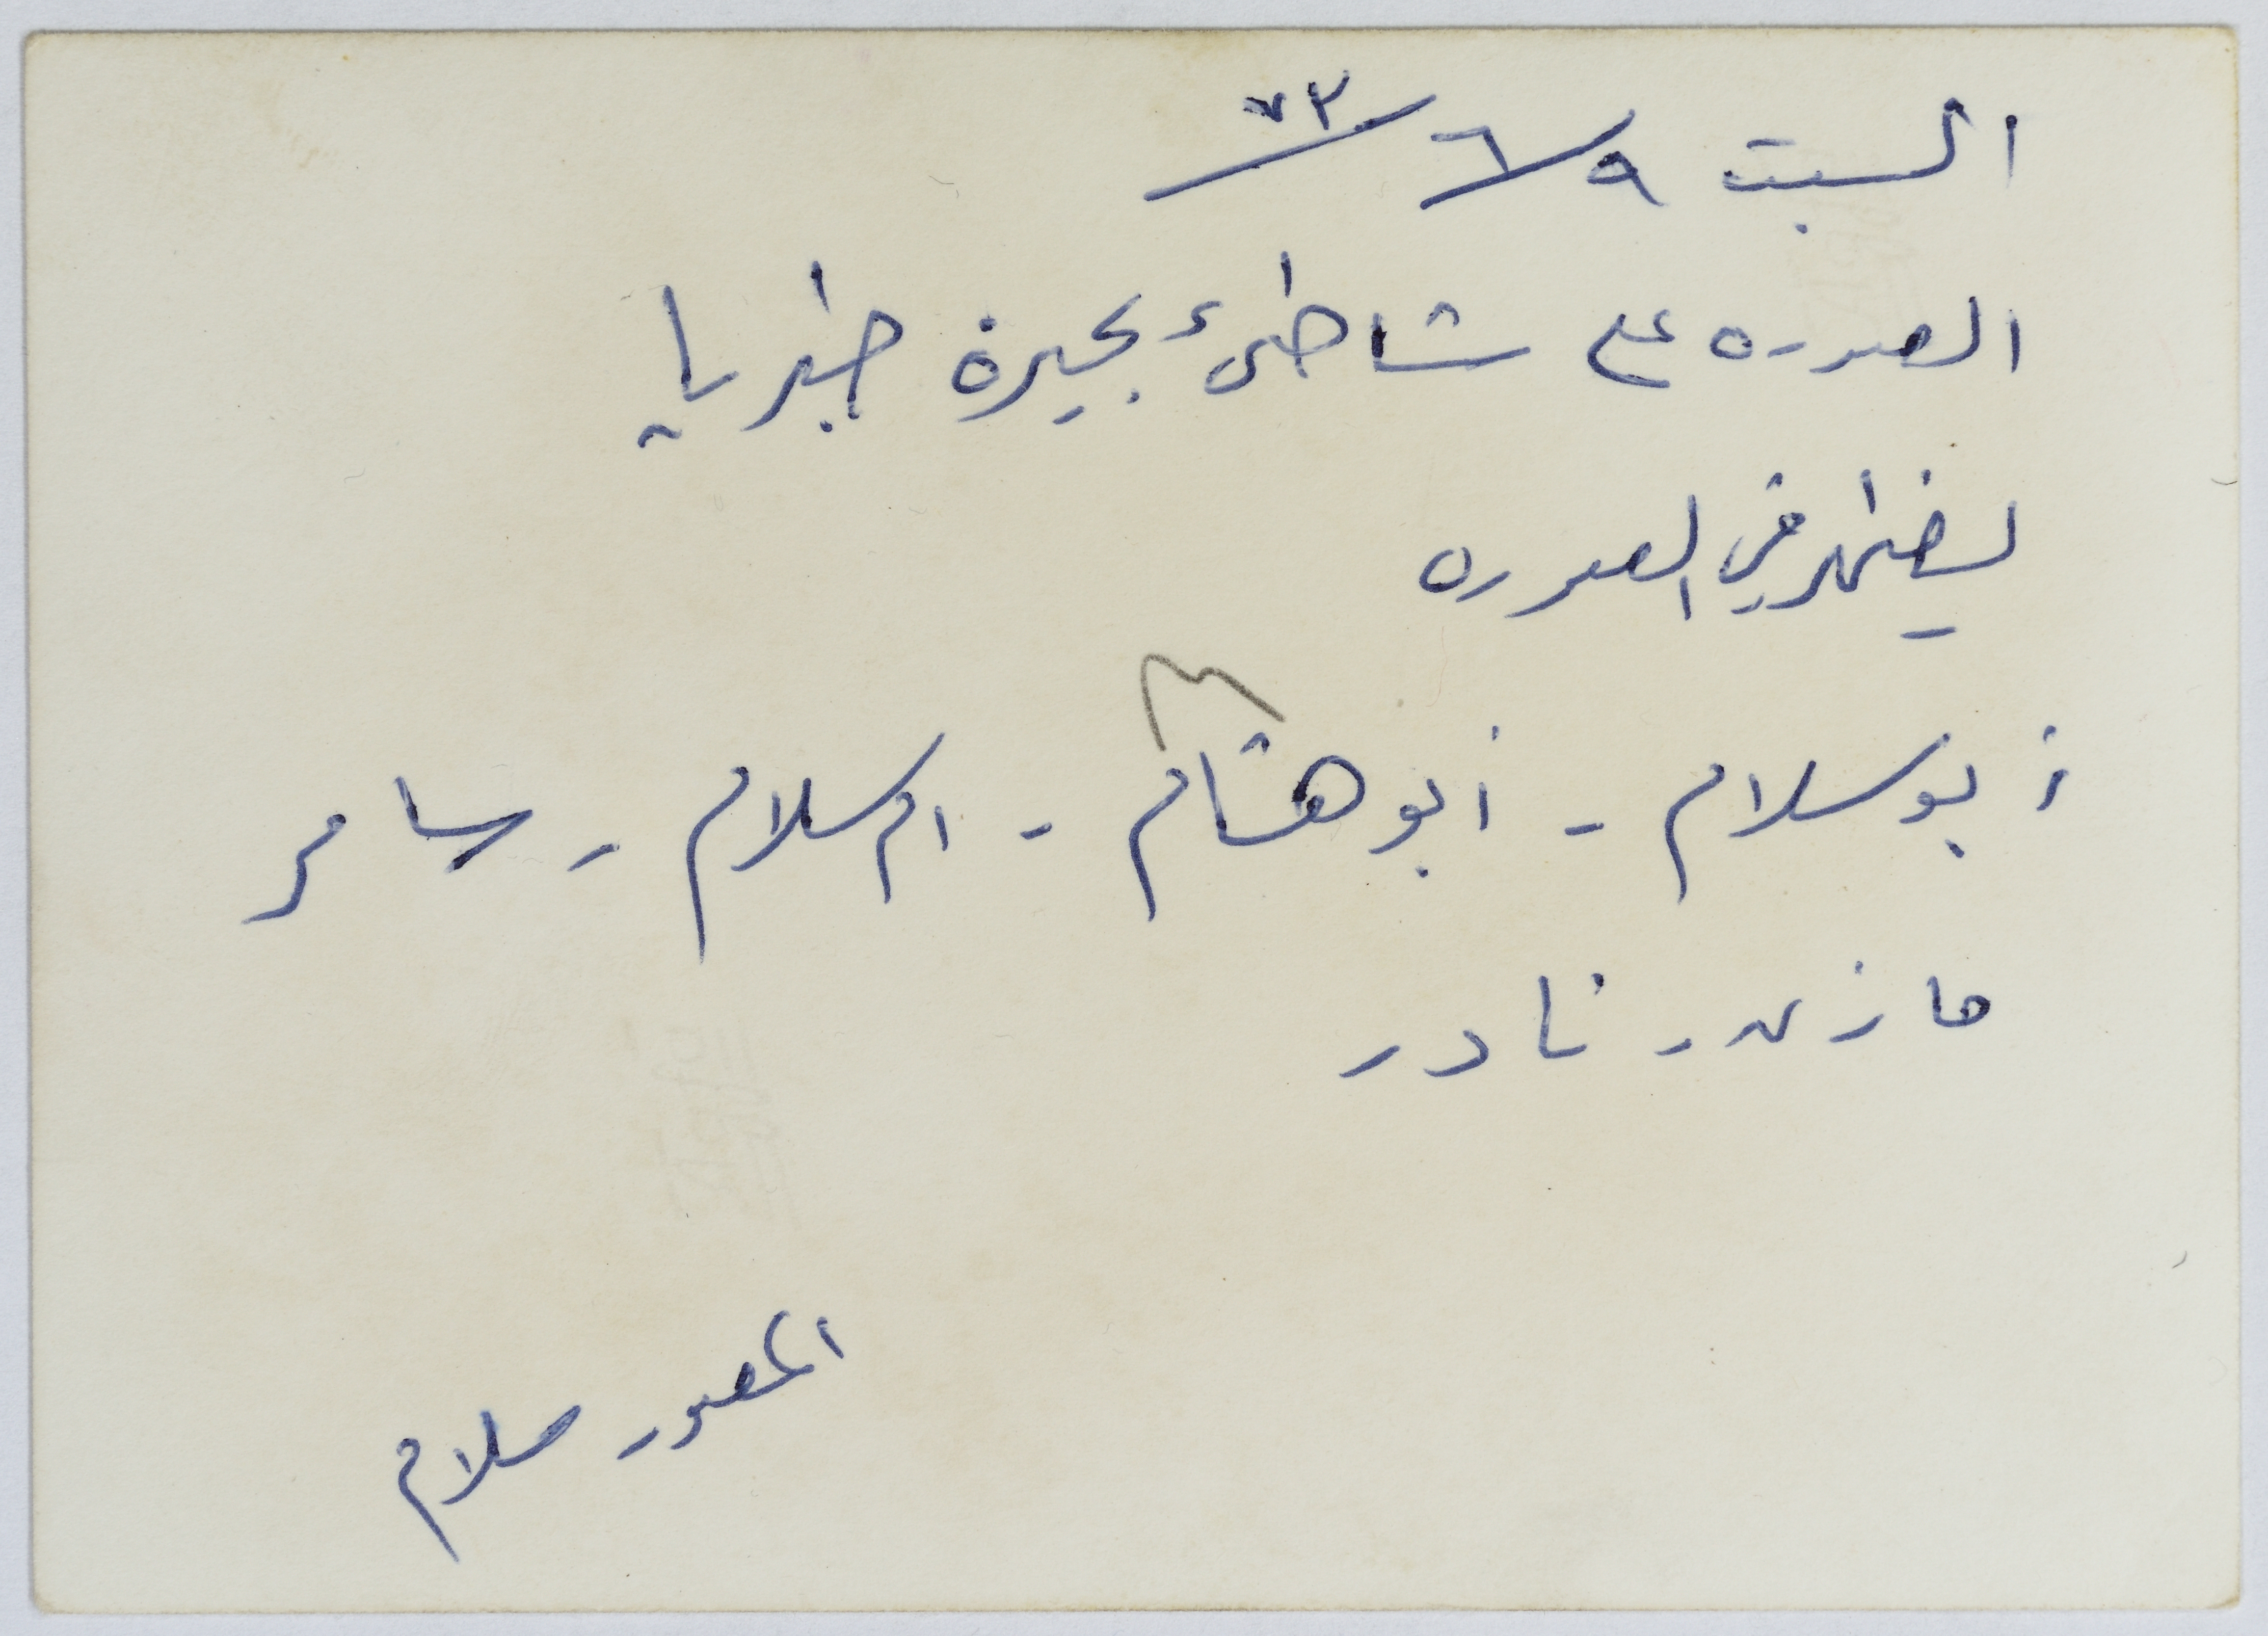 السبت ٩/٦/٧٣
الصوره على شاطئ بحيرة طبريا
يظهر في الصوره
أبو سلام - أبو هشام - ام سلام - سامر
مازن - نادر
المصور سلام